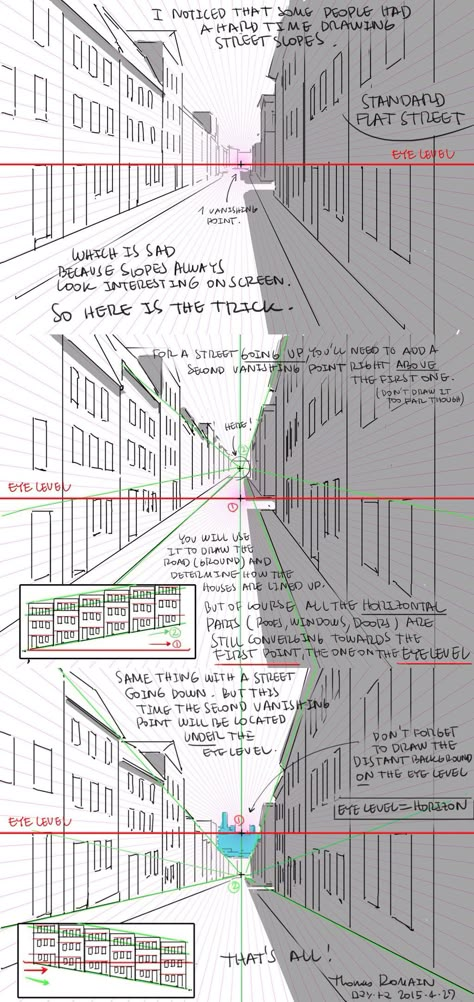 I NOTICED THAT SOME PEOPLE HAD
A HARD TIME DRAWING
STREET SLOPES.
STANDARD
FLAT STREET
EYE LEVEL
1 VANISHING
POINT.
WHICH IS SAD
BECAUSE SLOPES ALWAYS
LOOK INTERESTING ON SCREEN.
SO HERE IS THE TRICK.
FOR A STREET GOING UP, YOU'LL NEED TO ADD A
SECOND VANISHING POINT RIGHT ABOVE
THE FIRST ONE.
(DON'T DRAW IT
TOO FAR THOUGH)
HERE!
②
EYE LEVEL
①
YOU WILL USE
IT TO DRAW THE
ROAD (GROUND) AND
DETERMINE HOW THE
HOUSES ARE LINED UP.
BUT OF COURSE ALL THE HORIZONTAL
PARTS (ROOFS, WINDOWS, DOORS) ARE
STILL CONVERGING TOWARDS THE
FIRST POINT, THE ONE ON THE EYE LEVEL
②
①
SAME THING WITH A STREET
GOING DOWN. BUT THIS
TIME THE SECOND VANISHING
POINT WILL BE LOCATED
UNDER THE
EYE LEVEL.
DON'T FORGET
TO DRAW THE
DISTANT BACKGROUND
ON THE EYE LEVEL
EYE LEVEL = HORIZON
EYE LEVEL
①
②
THAT'S ALL!
Thomas Romain
2015.4.27